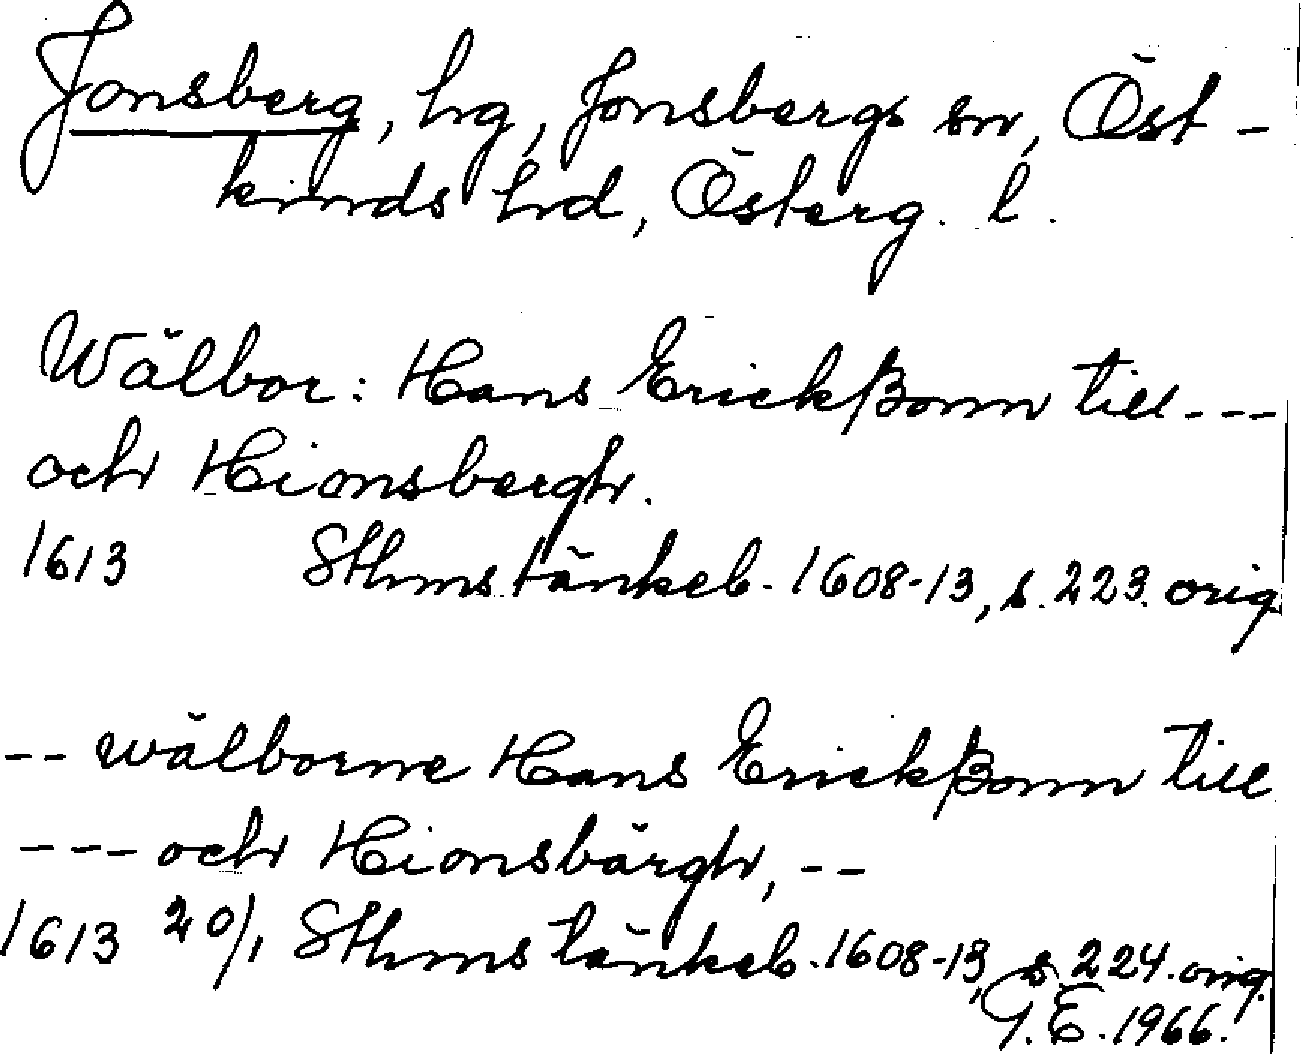 Jonsberg, hg, Jonsbergs sn, Öst-
kinds hd, Österg. l.
Wälbor: Hans Erickßonn till ---
och Hionsbergh.
1613 Sthms tänkeb. 1608-13, s. 223. orig
-- wälborne Hans Erickßonn till
--- och Hionsbärgh, --
1613 20/1 Sthms tänkeb. 1608-13, s. 224. orig.
G. E. 1966.